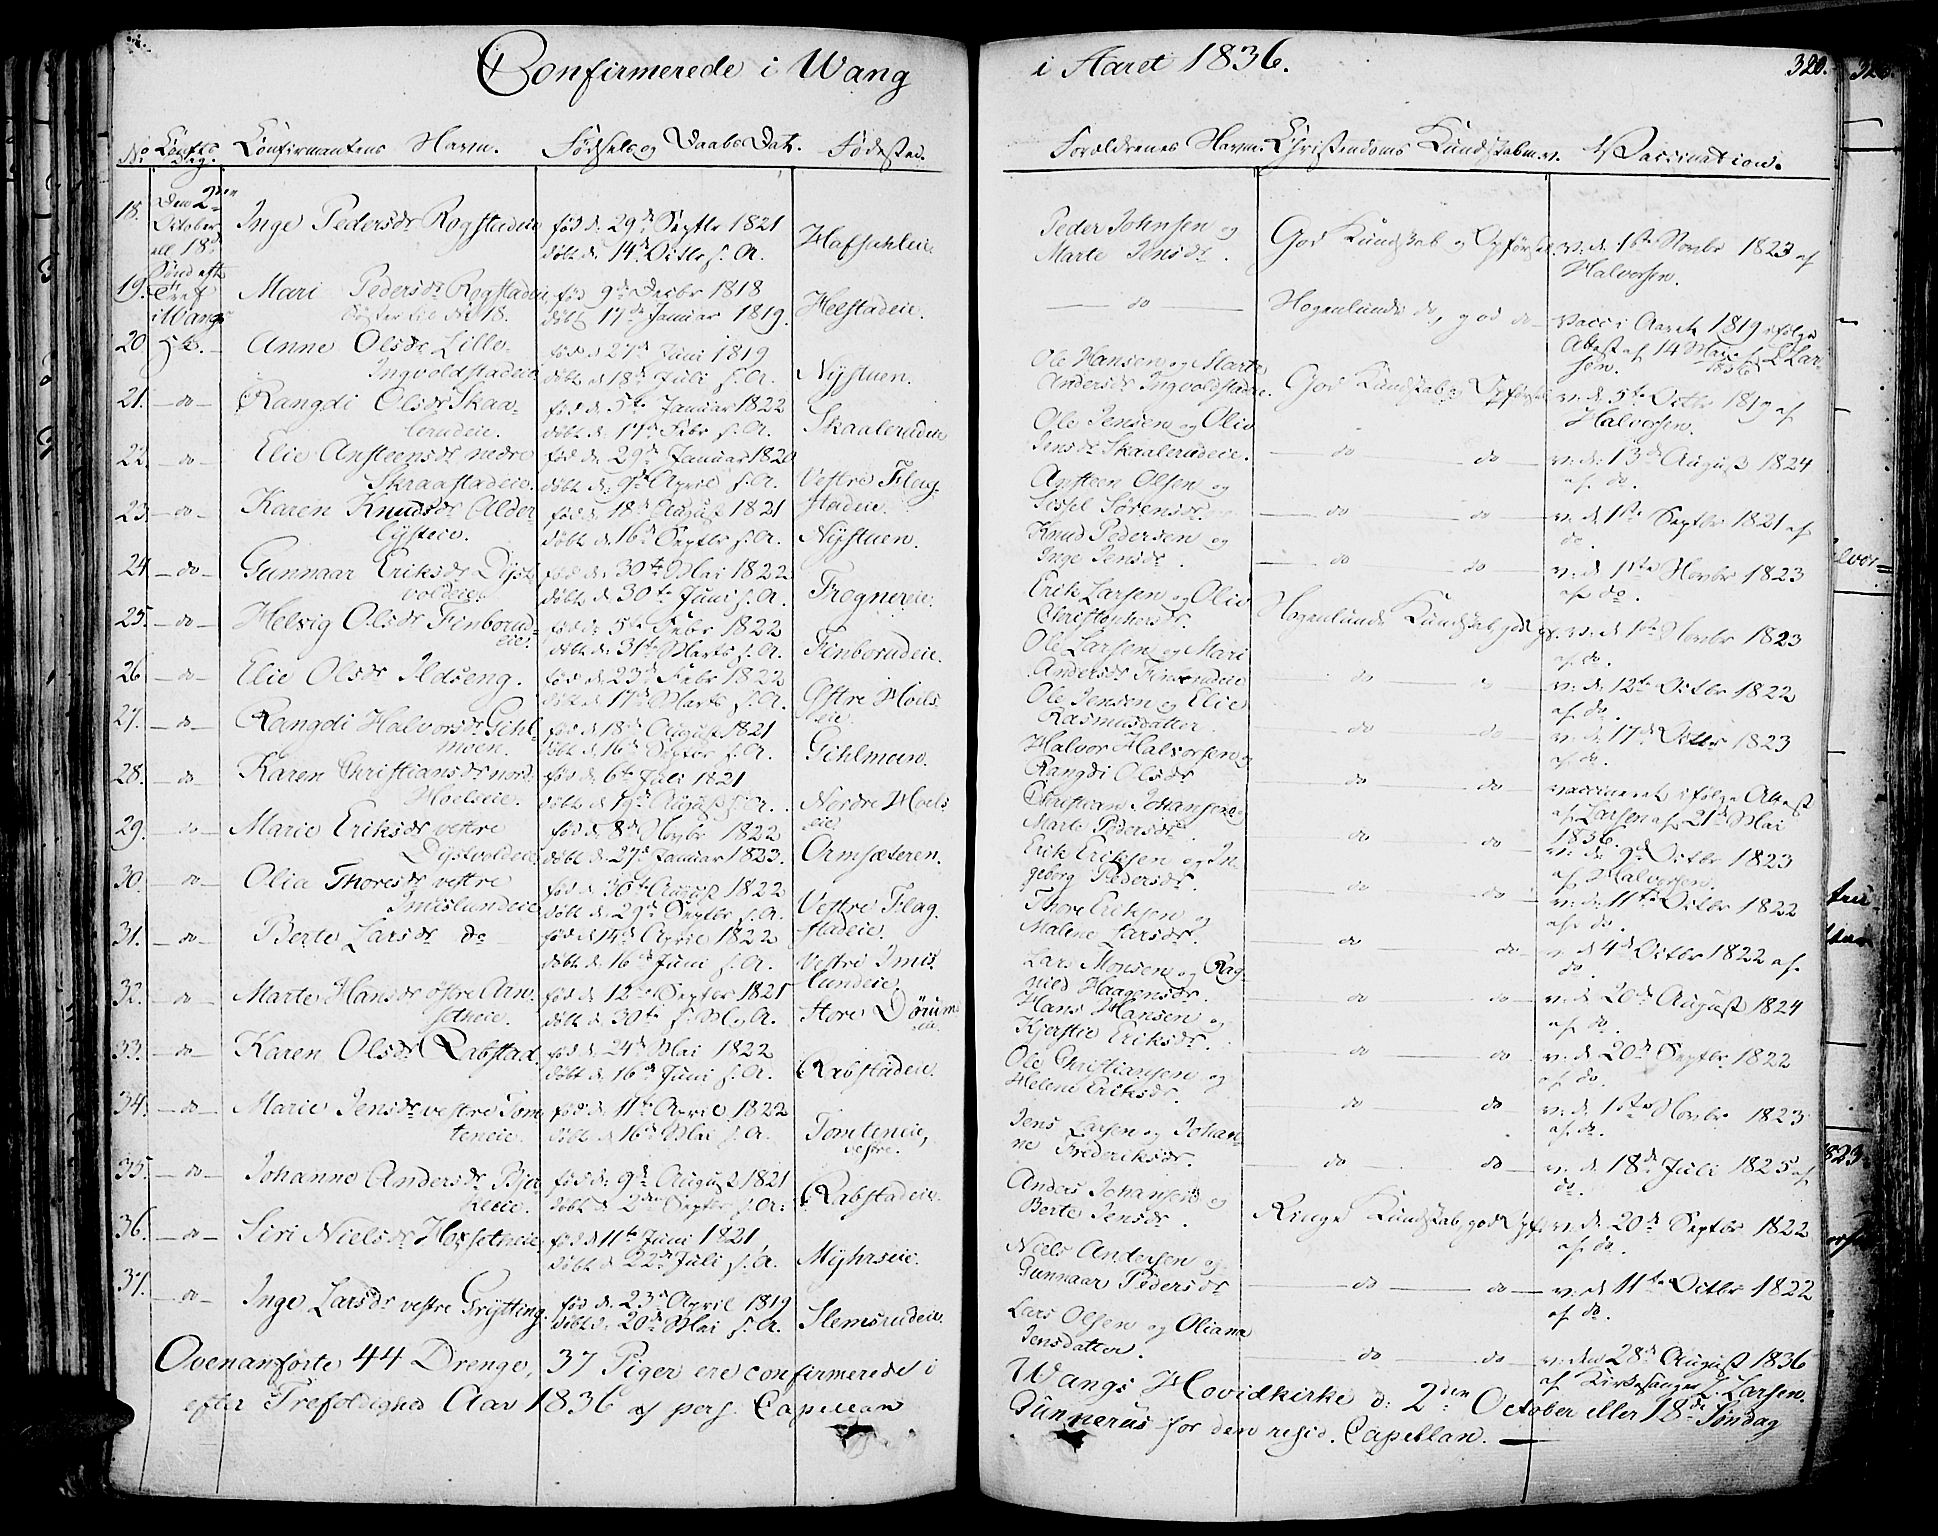 Confirmerede i Wang i Aaret 1836. 320.
No Confs Dag. Confirmantens Navn. Fødsels og Daabs Dat. Fødested. Forældrenes Navne. Christendoms Kundskab m.v. Vaccination.
18. Den 2den October ell. 18de Sønd. eft. Tref. i Wang
Inge Pedersdr Rogstadeie
fød d. 29de Septbr 1821
døbt d. 14de Octbr s. A.
Peder Johnsen og
Marte Jensdr.
God Kundskab og Opførsel
v. d. 1ste Novbr 1823 af
Halvorsen.
19. Mari Pedersdr Rogstadeie
Søster til No 18.
fød 9de Decbr 1818
døbt 17de Januar 1819.
Helstadeie.
— do —
Nogenlunde do, god do
Vacc. i Aaret 1819 ifølge
Attest af 14 Mai 1836 f. L. Larsen.
20. do. Anne Olsdr Lille-
Ingvoldstadeie
fød d. 27de Juni 1819
døbt d. 18de Juli s. A.
Nystuen.
Ole Hansen og Marte
Andersdr Ingvoldstadeie.
God Kundskab og Opførsel
v. d. 5te Octbr 1819 af
Halvorsen.
21. — do — Rangdi Olsdr Skaa-
lerudeie.
fød d. 5te Januar 1822
døbt d. 17de Febr s. A.
Skaalerudeie
Ole Jensen og Olia
Jensdr Skaalerudeie.
— do — do —
v. d. 13de August 1824
af do.
22. — do — Elie Ansteensdr nedre
Skraastadeie.
fød d. 29de Januar 1820
døbt d. 9de April s. A.
Vestre Flag-
stadeie.
Ansteen Olsen og
Sissel Sørensdr.
— do — do —
v. d. 1ste Septbr 1821 af
do.
23. — do — Karen Knudsdr Alder-
lysteie.
fød d. 18de August 1821
døbt d. 16de Septbr s. A.
Nystuen
Knud Pedersen og
Inge Jensdr.
— do — do —
v. d. 1ste Novbr 1823
af do.
24. — do — Gunnaar Eriksdr Dyst-
voldeie.
fød d. 30te Mai 1822
døbt d. 30te Juni s. A.
Frogneeie.
Erik Larsen og Olia
Christophersdr.
Nogenlunde Kundskab, god Opf.
v. d. 1ste Novbr 1823
af do.
25. — do — Helvig Olsdr Finborud-
eie.
fød d. 5te Febr 1822
døbt d. 31te Marts s. A.
Finborudeie.
Ole Larsen og Mari
Andersdr
— do — do —
v. d. 12te Octbr 1822
af do.
26. — do — Elie Olsdr Ildseng.
fød d. 23de Febr 1822
døbt d. 17de Marts s. A.
Østre Hoels-
eie.
Ole Jensen og Elie
Rasmusdatter
— do — do —
v. d. 17de Octbr 1823
af do.
27. — do — Rangdi Halvorsdr Gihl-
moen.
fød d. 18de August 1821
døbt d. 16de Septbr s. A.
Gihlmoen.
Halvor Halvorsen og
Rangdi Olsdr
— do — do —
vaccineret ifølge Attest
af Larsen af 21de Mai
1836.
28. — do — Karen Christiansdr nord.
Hoelseie.
fød d. 6te Juli 1821
døbt d. 19de August s. A.
Nordre Hoels-
eie.
Christian Johansen og
Marte Pedersdr.
— do — do —
v. d. 9de Octbr 1823
af Halvorsen.
29. — do — Marie Eriksdr vestre
Dystvoldeie.
fød d. 8de Novbr 1822
døbt d. 27de Januar 1823.
Ormsæteren.
Erik Eriksen og In-
geborg Pedersdr.
— do — do —
v. d. 11te Octbr 1822
af do.
30. — do — Olia Thoresdr vestre
Imislundeie
fød d. 30te August 1822
døbt d. 29de Septbr s. A.
Vestre Flag-
stadeie.
Thore Eriksen og
Malene Larsdr.
— do — do —
v. d. 4de Octbr 1822 af
do.
31. — do — Berte Larsdr do
fød d. 14de April 1822
døbt d. 16de Juni s. A.
Vestre Imis-
lundeie.
Lars Monsen og Rag-
nild Haagensdr.
— do — do —
v. d. 20de August 1824
af do.
32. — do — Marte Hansdr østre Arn-
setheie.
fød d. 12te Septbr 1821
døbt d. 30te s. M. & A.
Store Dørum-
eie.
Hans Hansen og
Kjerstie Eriksdr.
— do — do —
v. d. 20de Septbr 1822
af do.
33. — do — Karen Olsdr Rabstad
fød d. 24de Mai 1822
døbt d. 16de Juni s. A.
Rabstadeie.
Ole Christiansen og
Helene Eriksdr.
— do — do —
v. d. 1ste Novbr 1823
af do.
34. — do — Marie Jensdr vestre Tom-
teneie.
fød d. 11te April 1822
døbt d. 16de Mai s. A.
Tomteneie,
vestre.
Jens Larsen og Johan-
ne Fredriksdr.
— do — do —
v. d. 18de Juli 1825 af
do.
35. — do — Johanne Andersdr Bje-
keeie.
fød d. 9de August 1821
døbt d. 2den Septbr s. A.
Rabstadeie.
Anders Johansen og
Berte Jensdr.
Ringe Kundskab, god Opf.
v. d. 20de Septbr 1822
af do.
36. — do — Siri Nielsdr Hoxsetheie
fød d. 11te Juni 1821
døbt d. 22de Juli s. A.
Myhrseie.
Niels Andersen og
Gunnaar Pedersdr
— do — do —
v. d. 11te Octbr 1822
af do.
37. — do — Inge Larsdr vestre Grytting.
fød d. 23de April 1819
døbt d. 20de Mai s. A.
Slemsrudeie.
Lars Olsen og Oliana
Jensdatter.
— do — do —
v. den 28de August 1836
af Kirkesanger L. Larsen.
Ovenanførte 44 Drenge, 37 Piger ere confirmerede i Wangs Hovidkirke d: 2den October eller 18de Søndag
efter Trefoldighed Aar 1836 af pers. Capellan Gunnerus for den resid. Capellan.